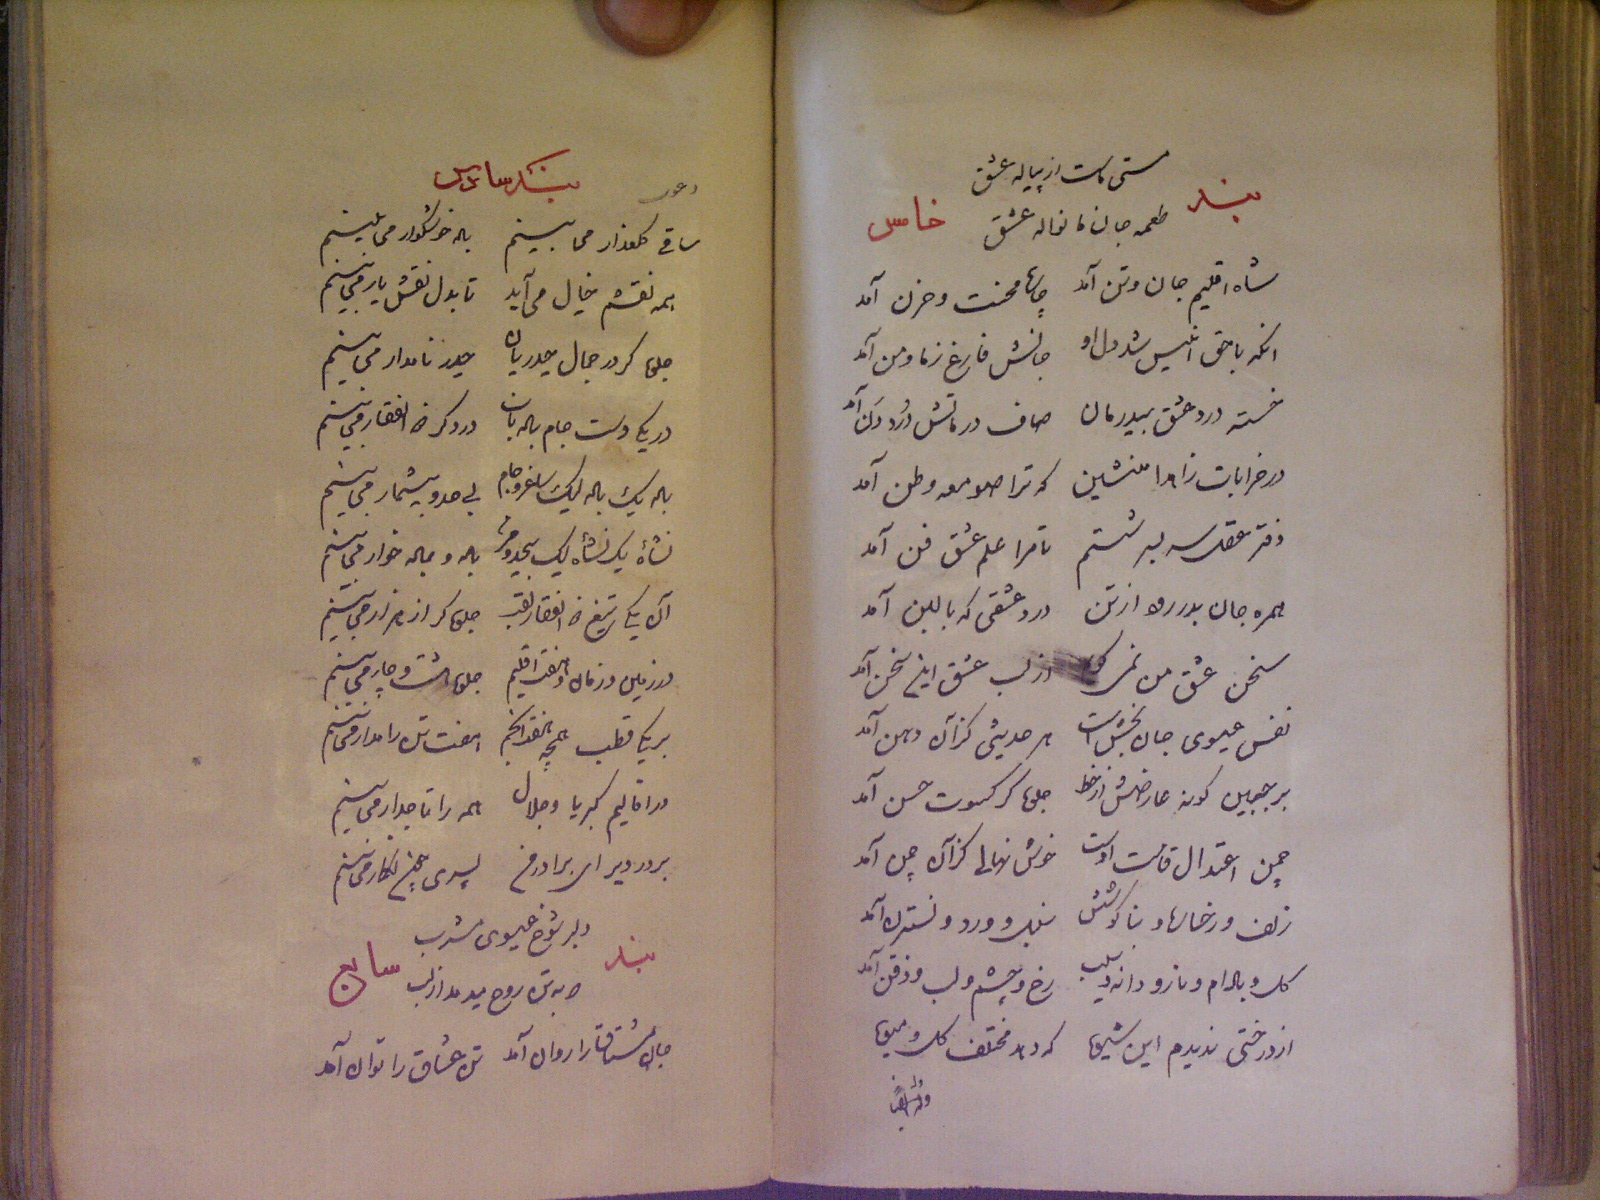 مستی ماست از پیاله عشق
بند طعمه جان ما نواله عشق خامس
شاه اقلیم جان و تن آمد جانها محنت و حزن آمد
انکه با حق انیس شد دل او جانش فارغ ز ما و من آمد
خسته درد عشق بیدرمان صاف درمانش درد دن آمد
در خرابات زاهدا منشین که ترا صومعه وطن آمد
دفتر عقل سر بسر شستم تا مرا علم عشق فن آمد
همره جان بدر رود از تن درد عشقی که با لبن آمد
سخن عشق من نمی گویم از لب عشق این سخن آمد
نفس عیسوی جان بخش است هر حدیثی کز آن دهن آمد
بر جبین گونه عارضش از خط جلوه گر کسوت حسن آمد
چمن اعتدال قامت اوست خوش نهالی کز آن چمن آمد
زلف و رخسار و بناگوشش سنبل و ورد و نسترن آمد
گل و بادام و نار و دانه و سیب رخ و چشم و لب و ذقن آمد
از درختی ندیدم این شیوه که دهد مختلف گل و میوه
بند سادس
ساقی گلعذار می بینم باده خوشگوار می بینم
همه نقشم خیال می آید تا بدل نقش یار می بینم
جلوه گر در جمال حیدریان حیدر نامدار می بینم
در یکی دست جام باده بان در دگر ذوالفقار می بینم
باده یک باده لیک ساغر و جام بی حد و بیشمار می بینم
نشأه یک نشأه لیک بیحد و مر باده و باده خوار می بینم
آن یکی تیغ ذوالفقار لقب جلوه گر از هزار می بینم
در زمین و زمان و هفت اقلیم جلوه هشت و چار می بینم
بر یکی قطب همچو هفت انجم هفت تن را مدار می بینم
در اقالیم کبریا و جلال همه را تاجدار می بینم
بر در دیر ای برادر من پسری چون نگار می بینم
دلبر شوخ عیسوی مشرب
بند که به تن روح میدمد از لب سابع
جان مشتاق را روان آمد تن عشاق را توان آمد